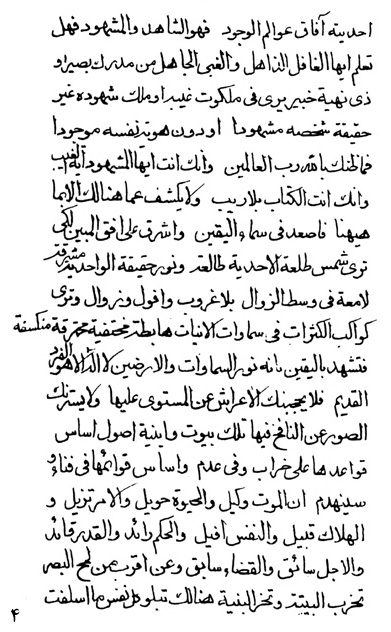 احديته آفاق عوالم الوجود فهو الشاهد والمشهود فهل
تعلم ايها الغافل الذاهل والغبى الجاهل من مدرك بصير او
ذى نهية خبير يرى فى ملكوت غيب او ملك شهوده غير
حقيقة شخصه مشهودا او دون هويته نفسه موجودا
فما ظنك بالله رب العالمين وانك انت ايها المشهود آية الغيب
وانك انت الكتاب بلا ريب ولا يكشف عما هنالك الا بما
هيهنا فاصعد فى سماء اليقين واشرق على افق المبين لكى
ترى شمس طلعة الاحدية طالعة ونور حقيقة الواحدية مشرقة
لامعة فى وسط الزوال بلا غروب وافول وزوال وترى
كواكب الكثرات فى سماوات الانيات هابطة مختفية محترقة منكسفة
فتشهد باليقين بانه نور السماوات والارضين لا اله الا هو الفرد
القديم فلا يحجبنك الاعراش عن المستوى عليها ولا يسترنك
الصور عن النافخ فيها تلك بيوت وابنية اصول اساس
قواعدها على خراب وفى عدم واساس قوائمها فى فناء و
سينهدم ان الموت وكيل والحيوة حويل والامر تزيل و
الهلاك قبيل والنفس افيل والحكم رائد والقدر قائد
والاجل سائق والقضاء سابق وعن اقرب من لمح البصر
تخرب البيتة وتخر البنية هنالك تبلو كل نفس ما اسلفت
۴